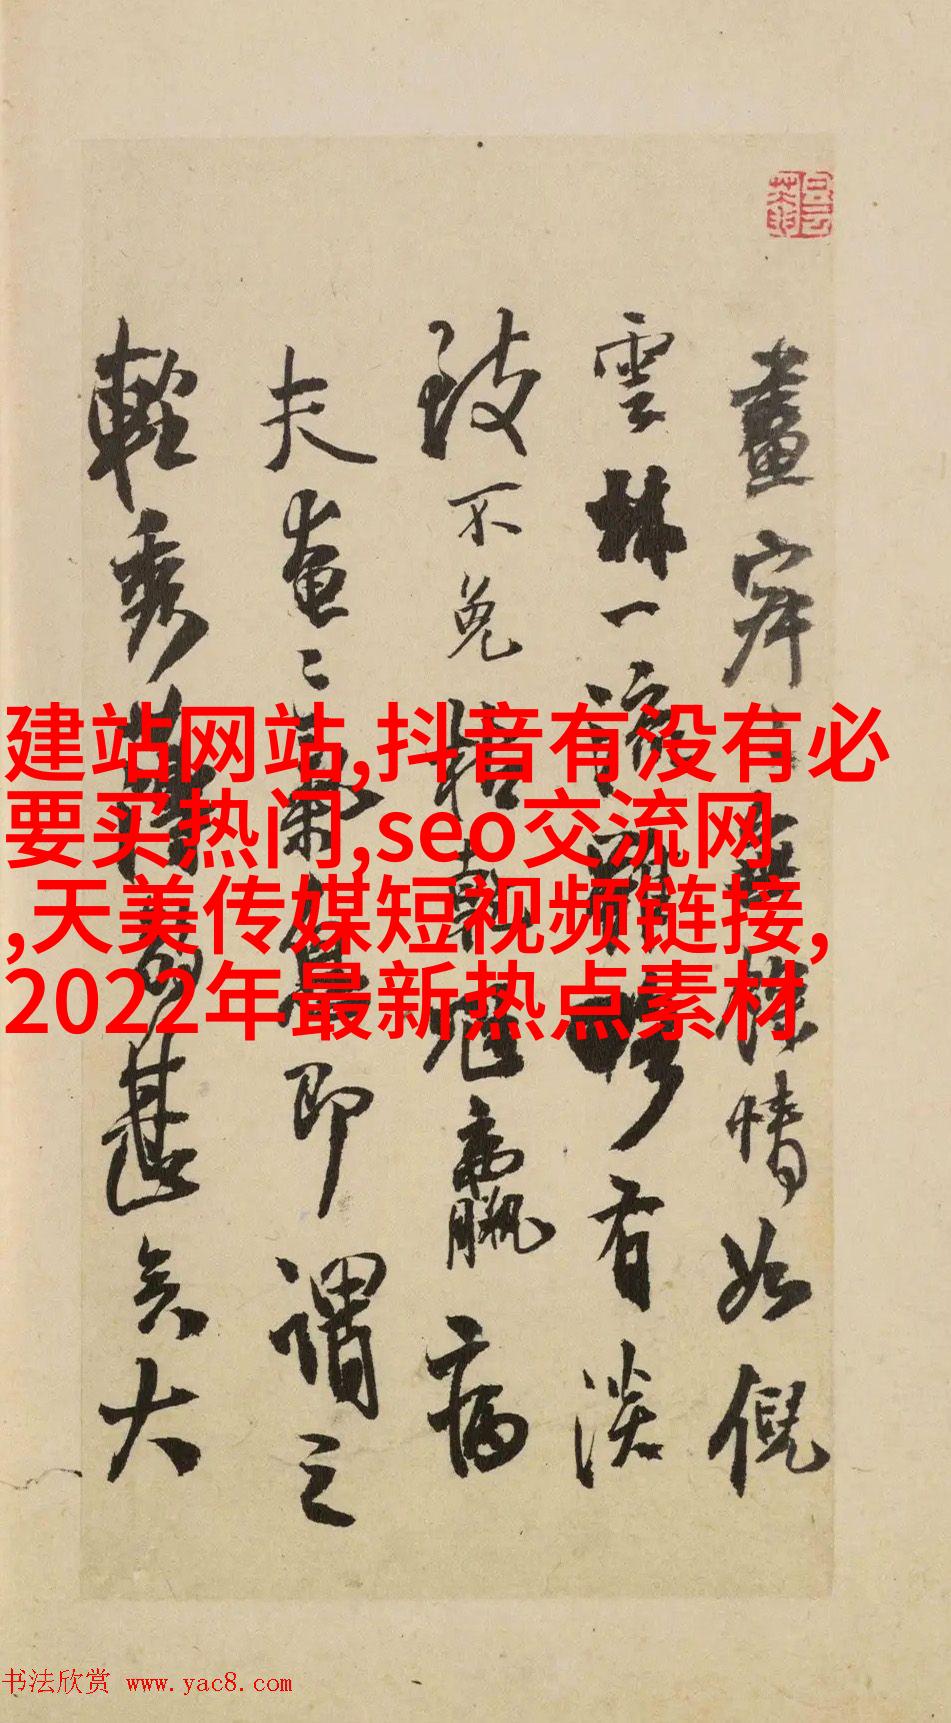 畫寂
餘情如倪
雲林一流
有淡
致不免枯乾尫羸病
夫畫之氣
即謂之
輕秀薄弱甚矣大
建站网站,抖音有没有必
要买热门,seo交流网
,天美传媒短视频链接,
2022年最新热点素材
书法欣赏 www.yac8.com